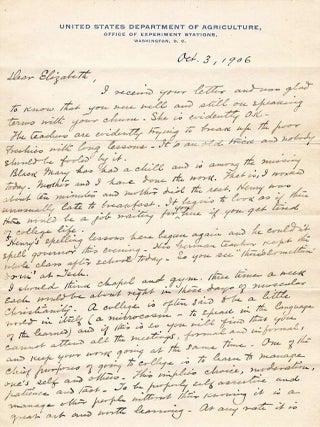 UNITED STATES DEPARTMENT OF AGRICULTURE,
OFFICE OF EXPERIMENT STATIONS,
WASHINGTON, D. C.
Oct. 3, 1906
Dear Elizabeth,
I receive your letter and was glad
to know that you were well and still on speaking
terms with your chum. She is evidently OK.
The teachers are evidently trying to break up the poor
freshies with long lessons. It's an old trick and nobody
should be fooled by it.
Black Mary has had a chill and is among the missing
today. Mother and I have done the work. That is, I worked
about ten minutes and mother did the rest. Henry was
unusually late to breakfast. It begins to look as if
there would be a job waiting for me if you get tired
of college life.
Henry's spelling lesson here began again and he could it
spell governor this evening. His German teacher kept the
whole class after school today. So you see
at Tech.
I should think chapel and gym three times a week
each would be about right in these days of muscular
Christianity. A college is often said to be a little
world in itself (a microcosm - to speak in the language
of the learned) and if this is so you will find that you
cannot attend all the meetings, formal and informal,
and keep your work going at the same time. One of the
chief purposes of going to college is to learn to manage
one's self and others. This implies choice, moderation,
patience and tact. To be properly self assertive and
manage other people without their knowing it is a
great art and worth learning. At any rate it is